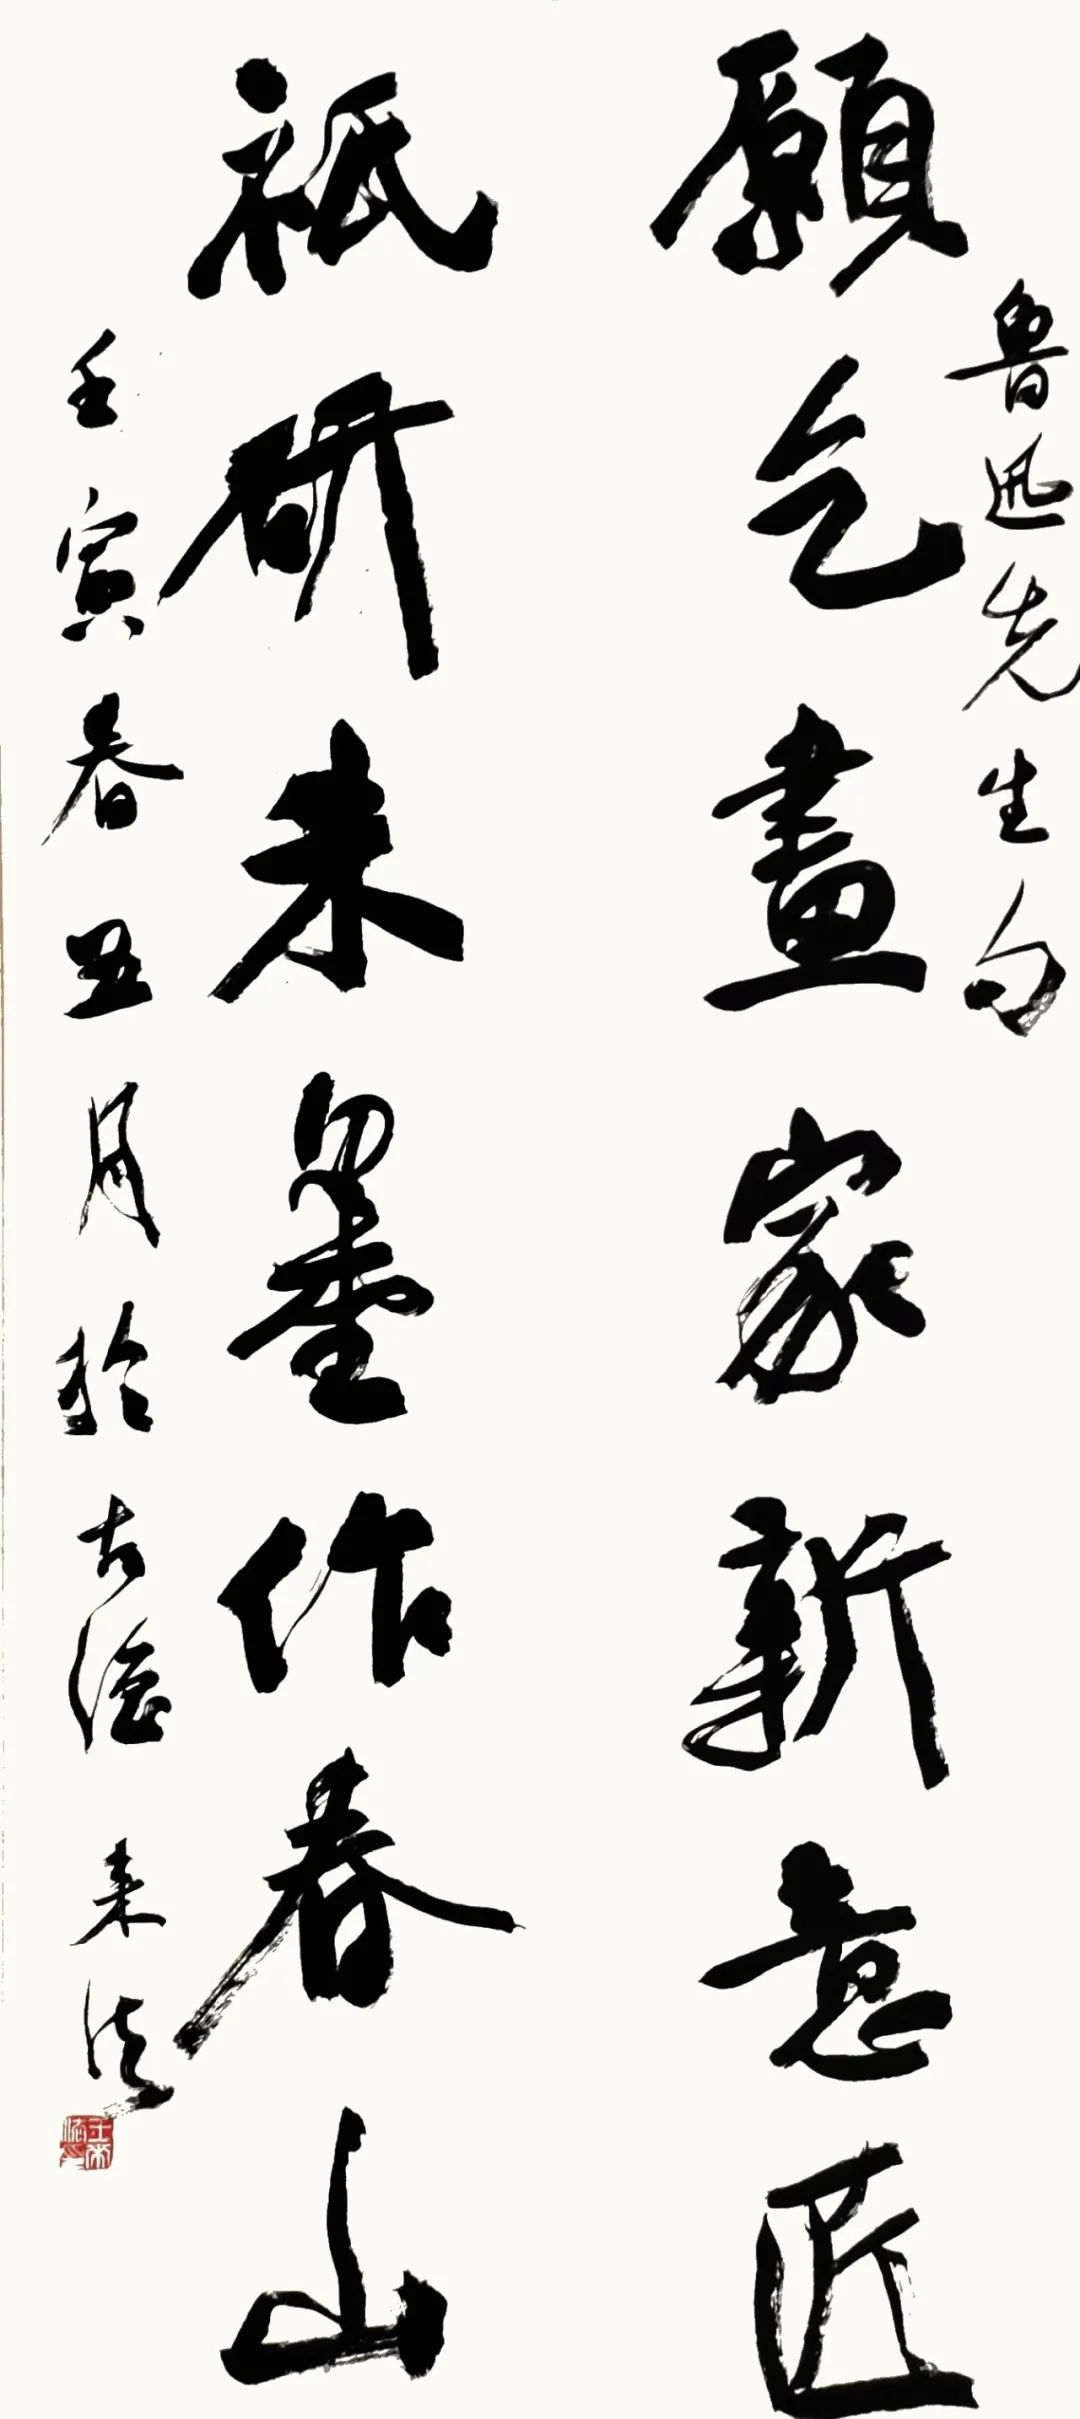 魯迅先生句
願乞畫家新意匠
祇研朱墨作春山
壬寅春月於古来法